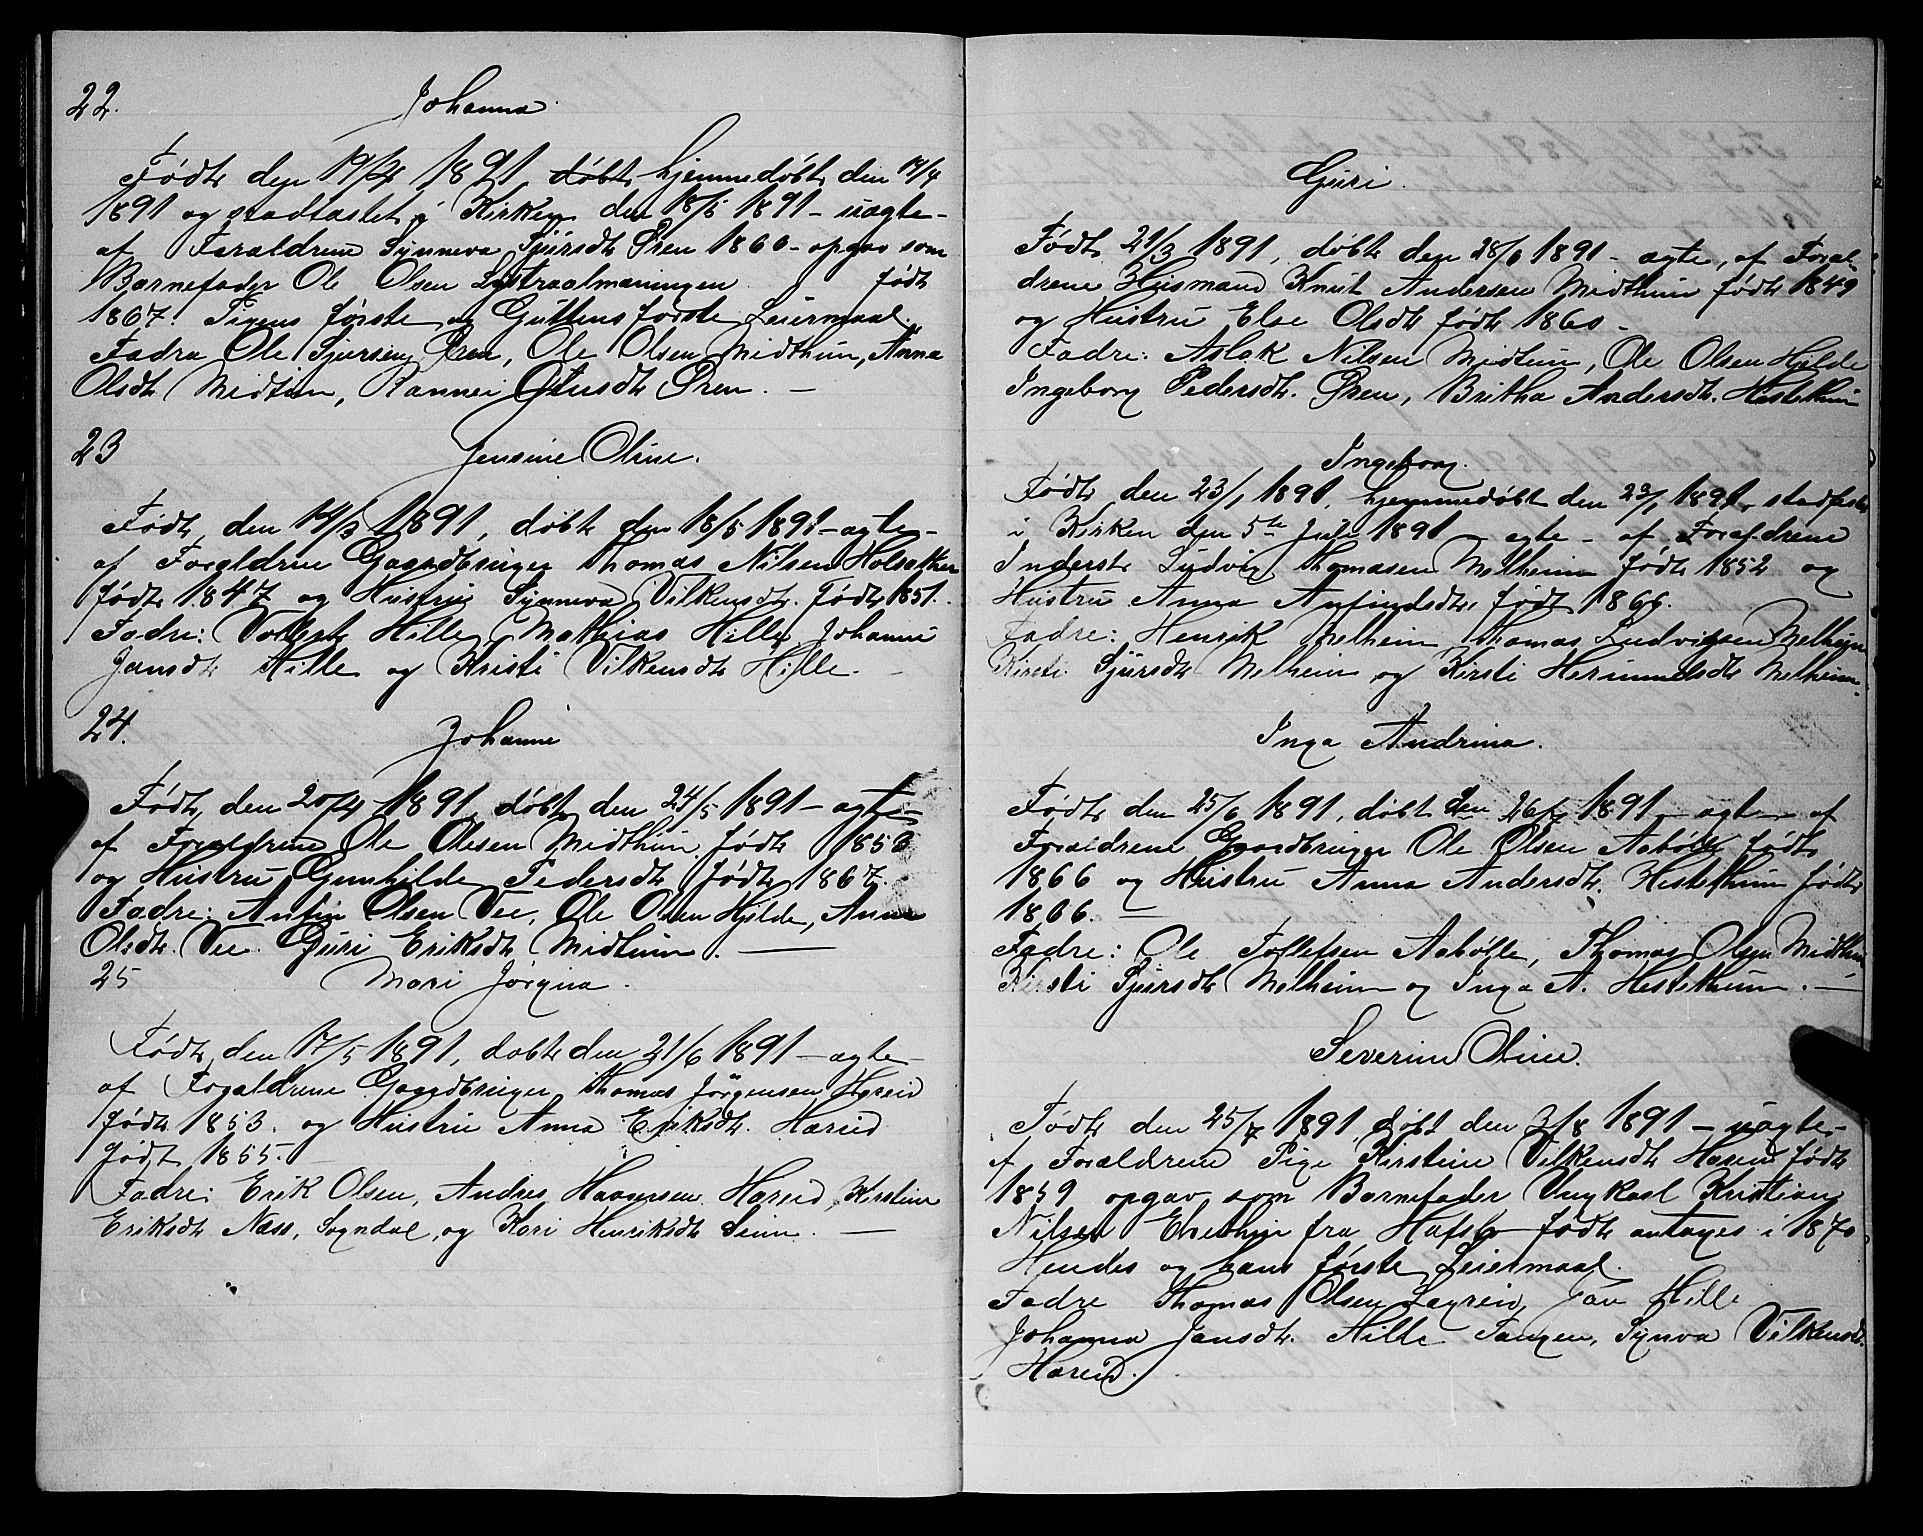 22. Johanna.
Født den 19/4 1891 døbt hjemmedøbt den 19/4
1891 og stadfæstet i Kirken den 18/5 1891 - uægte -
af Forældrene Synneva Sjursdt Øren 1866 - opgav som
Barnefader Ole Olsen født
1867. Pigens første og Guttens første Leiermaal.
Fadre Ole Sjursen Øren, Ole Olsen Midthun, Anna
Olsdt Midtun, Rannei Øren. -
23 Jensine Oline.
Født den 14/3 1891, døbt den 18/5 1891 - ægte -
af Forældrene Gaardbruger Thomas Nilsen
født 1847 og Hustru Synneva Vilkensdt. født 1851.
Fadre: Hille, Mathias Hille, Johanne
Jansdt Hille og Kristi Vilkensdt Hille. -
24. Johanne
Født den 20/4 1891, døbt den 24/5 1891 - ægte -
af Forældrene Ole Olsen Midthun født 1853
og Hustru Gunhilde Pedersdt født 1867.
Fadre: Anfin Olsen Vee, Ole Olsen Hjelde, Anna
Olsdt. Vee Guri Eriksdt Midthun. -
25 Mari Jorgina.
Født den 17/5 1891, døbt den 21/6 1891 - ægte -
af Forældrene Gaardbruger Thomas Jörgensen Hæreid
født 1853. og Hustru Anna Eriksdt. Hæreid
født 1855. -
Fadre: Erik Olsen, Andres Hæreid, Kirstine
Eriksdt Næss, Sogndal, og Kari Henriksdt -
Guri.
Født 21/3 1891, døbt den 28/6 1891 - ægte, af Foræl-
drene Husmand Knut Andersen Midthun født 1849
og Hustru Else Olsdt født 1860 -
Fadre: Aslak Nilsen Midtun, Ole Olsen Hjelde
Ingeborg Pedersdt. Øren, Britha Andersdt. Hestethun
Ingeborg.
Født den 23/1 1891, hjemmedøbt den 23/1 1891, stadfæstet
i Kirken den 5te Juli 1891 - ægte - af Forældrene
Inderst Ludvig Thomasen Melheim født 1852 og
Hustru Anna Anfindsdt. født 1866.
Fadre: Henrik Melheim, Thomas Ludvigsen Melheim
Kirsti Sjursdt Melheim og Kirsti Hermundsdt Melheim.
Inga Andrina.
Født den 25/6 1891, døbt den 26/7 1891 - ægte - af
Forældrene Gaardbruger Ole Olsen født
1866 og Hustru Anna Andersdt. Hestethun født
1866. -
Fadre: Ole Tollefsen Thomas Olsen Midthun
Kirsti Sjursdt Melheim og Inga A. Hestethun. -
Severine Oline.
Født den 25/7 1891 døbt den 2/8 1891 - uægte -
af Forældrene Pige Kirstine Vilkensdt Hæreid født
1859 opgav som Barnefader Ungkarl Kristian
Nilsen fra Hafslo født antages i 1870
Hendes og hans første Leiermaal.
Fadre Thomas Olsen Jan Hille
Johanna Jansdt. Hille Synva Vilkensdt.
Hæreid.